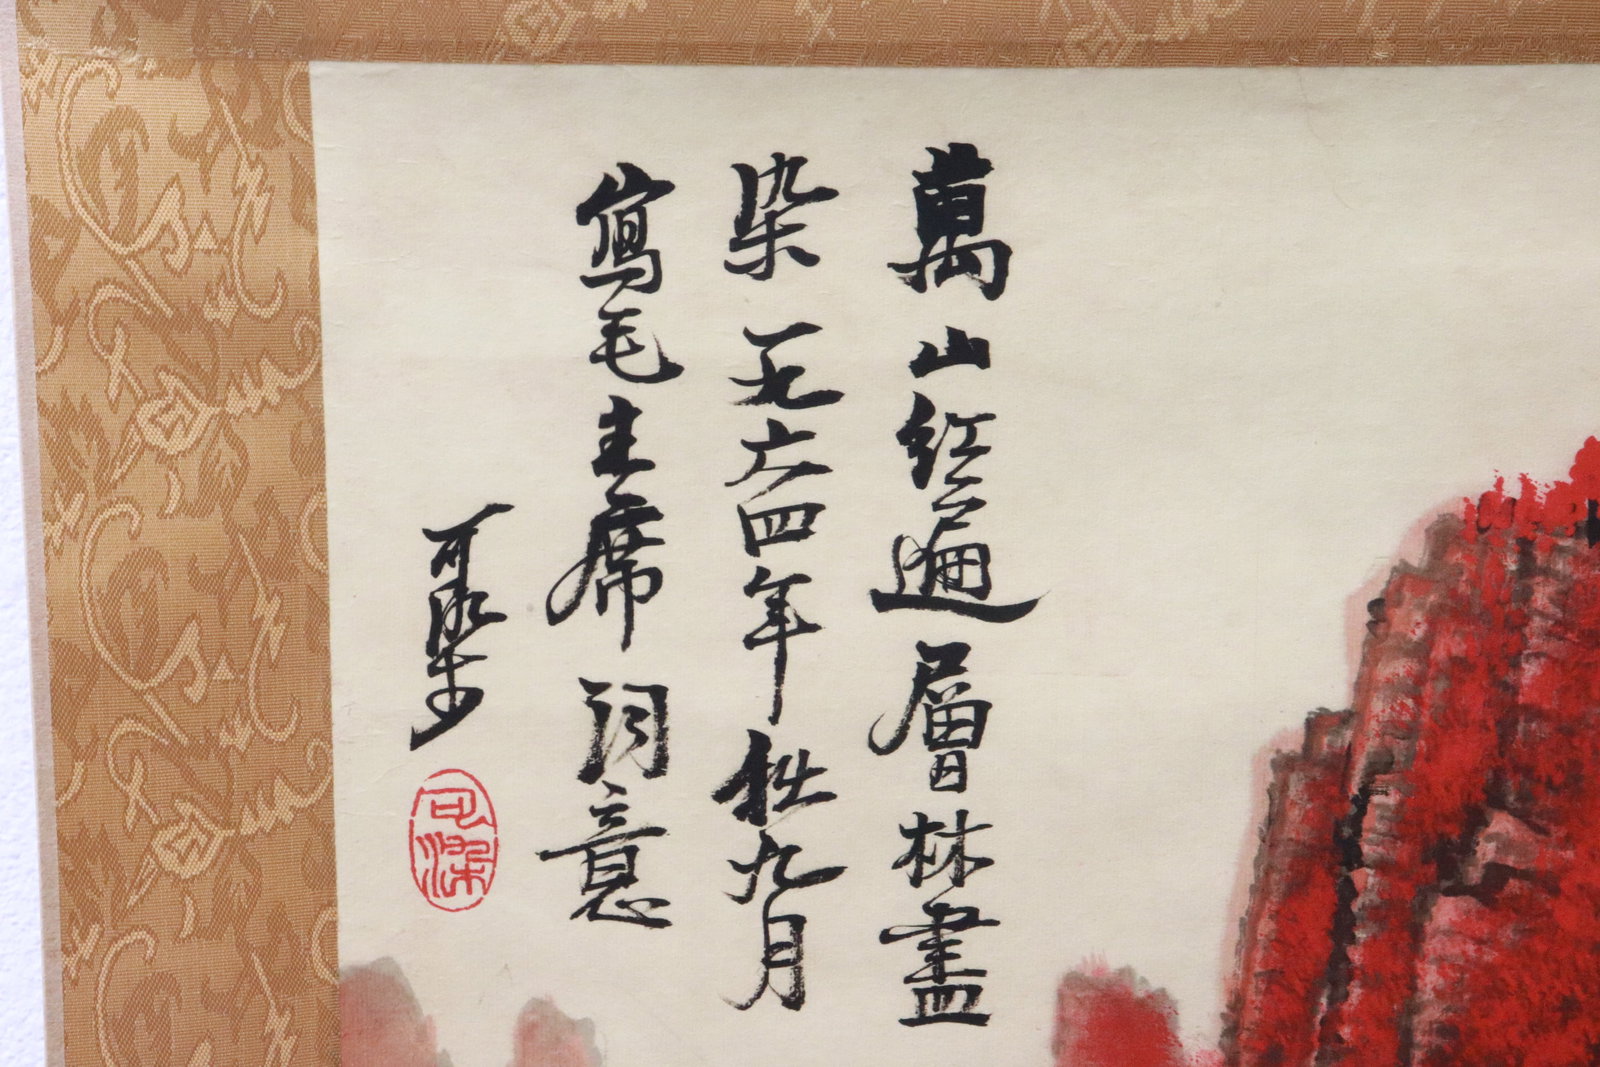 萬山紅遍層林盡
染 一九六四年秋九月
寫毛主席詞意
可染
可染